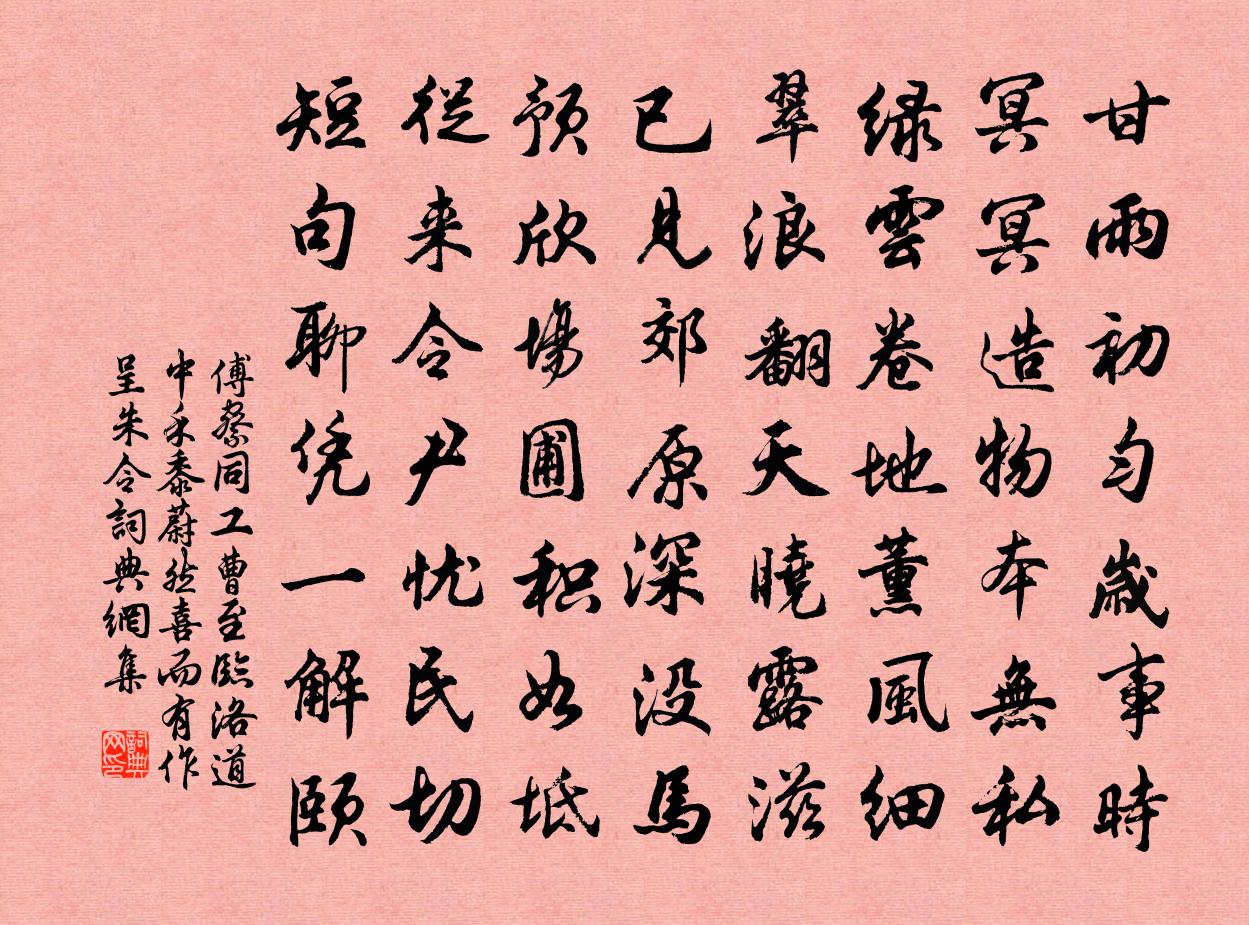 甘雨初匀歳事時
冥冥造物本無私
緑雲卷地薰風細
翠浪翻天曉露滋
已見郊原深没馬
预欣場圃积如坻
從来令尹忧民切
短句聊凭一解颐
傅察同工曹至臨洛道
中禾黍蔚然喜而有作
呈朱令詞典網集
詞典网印